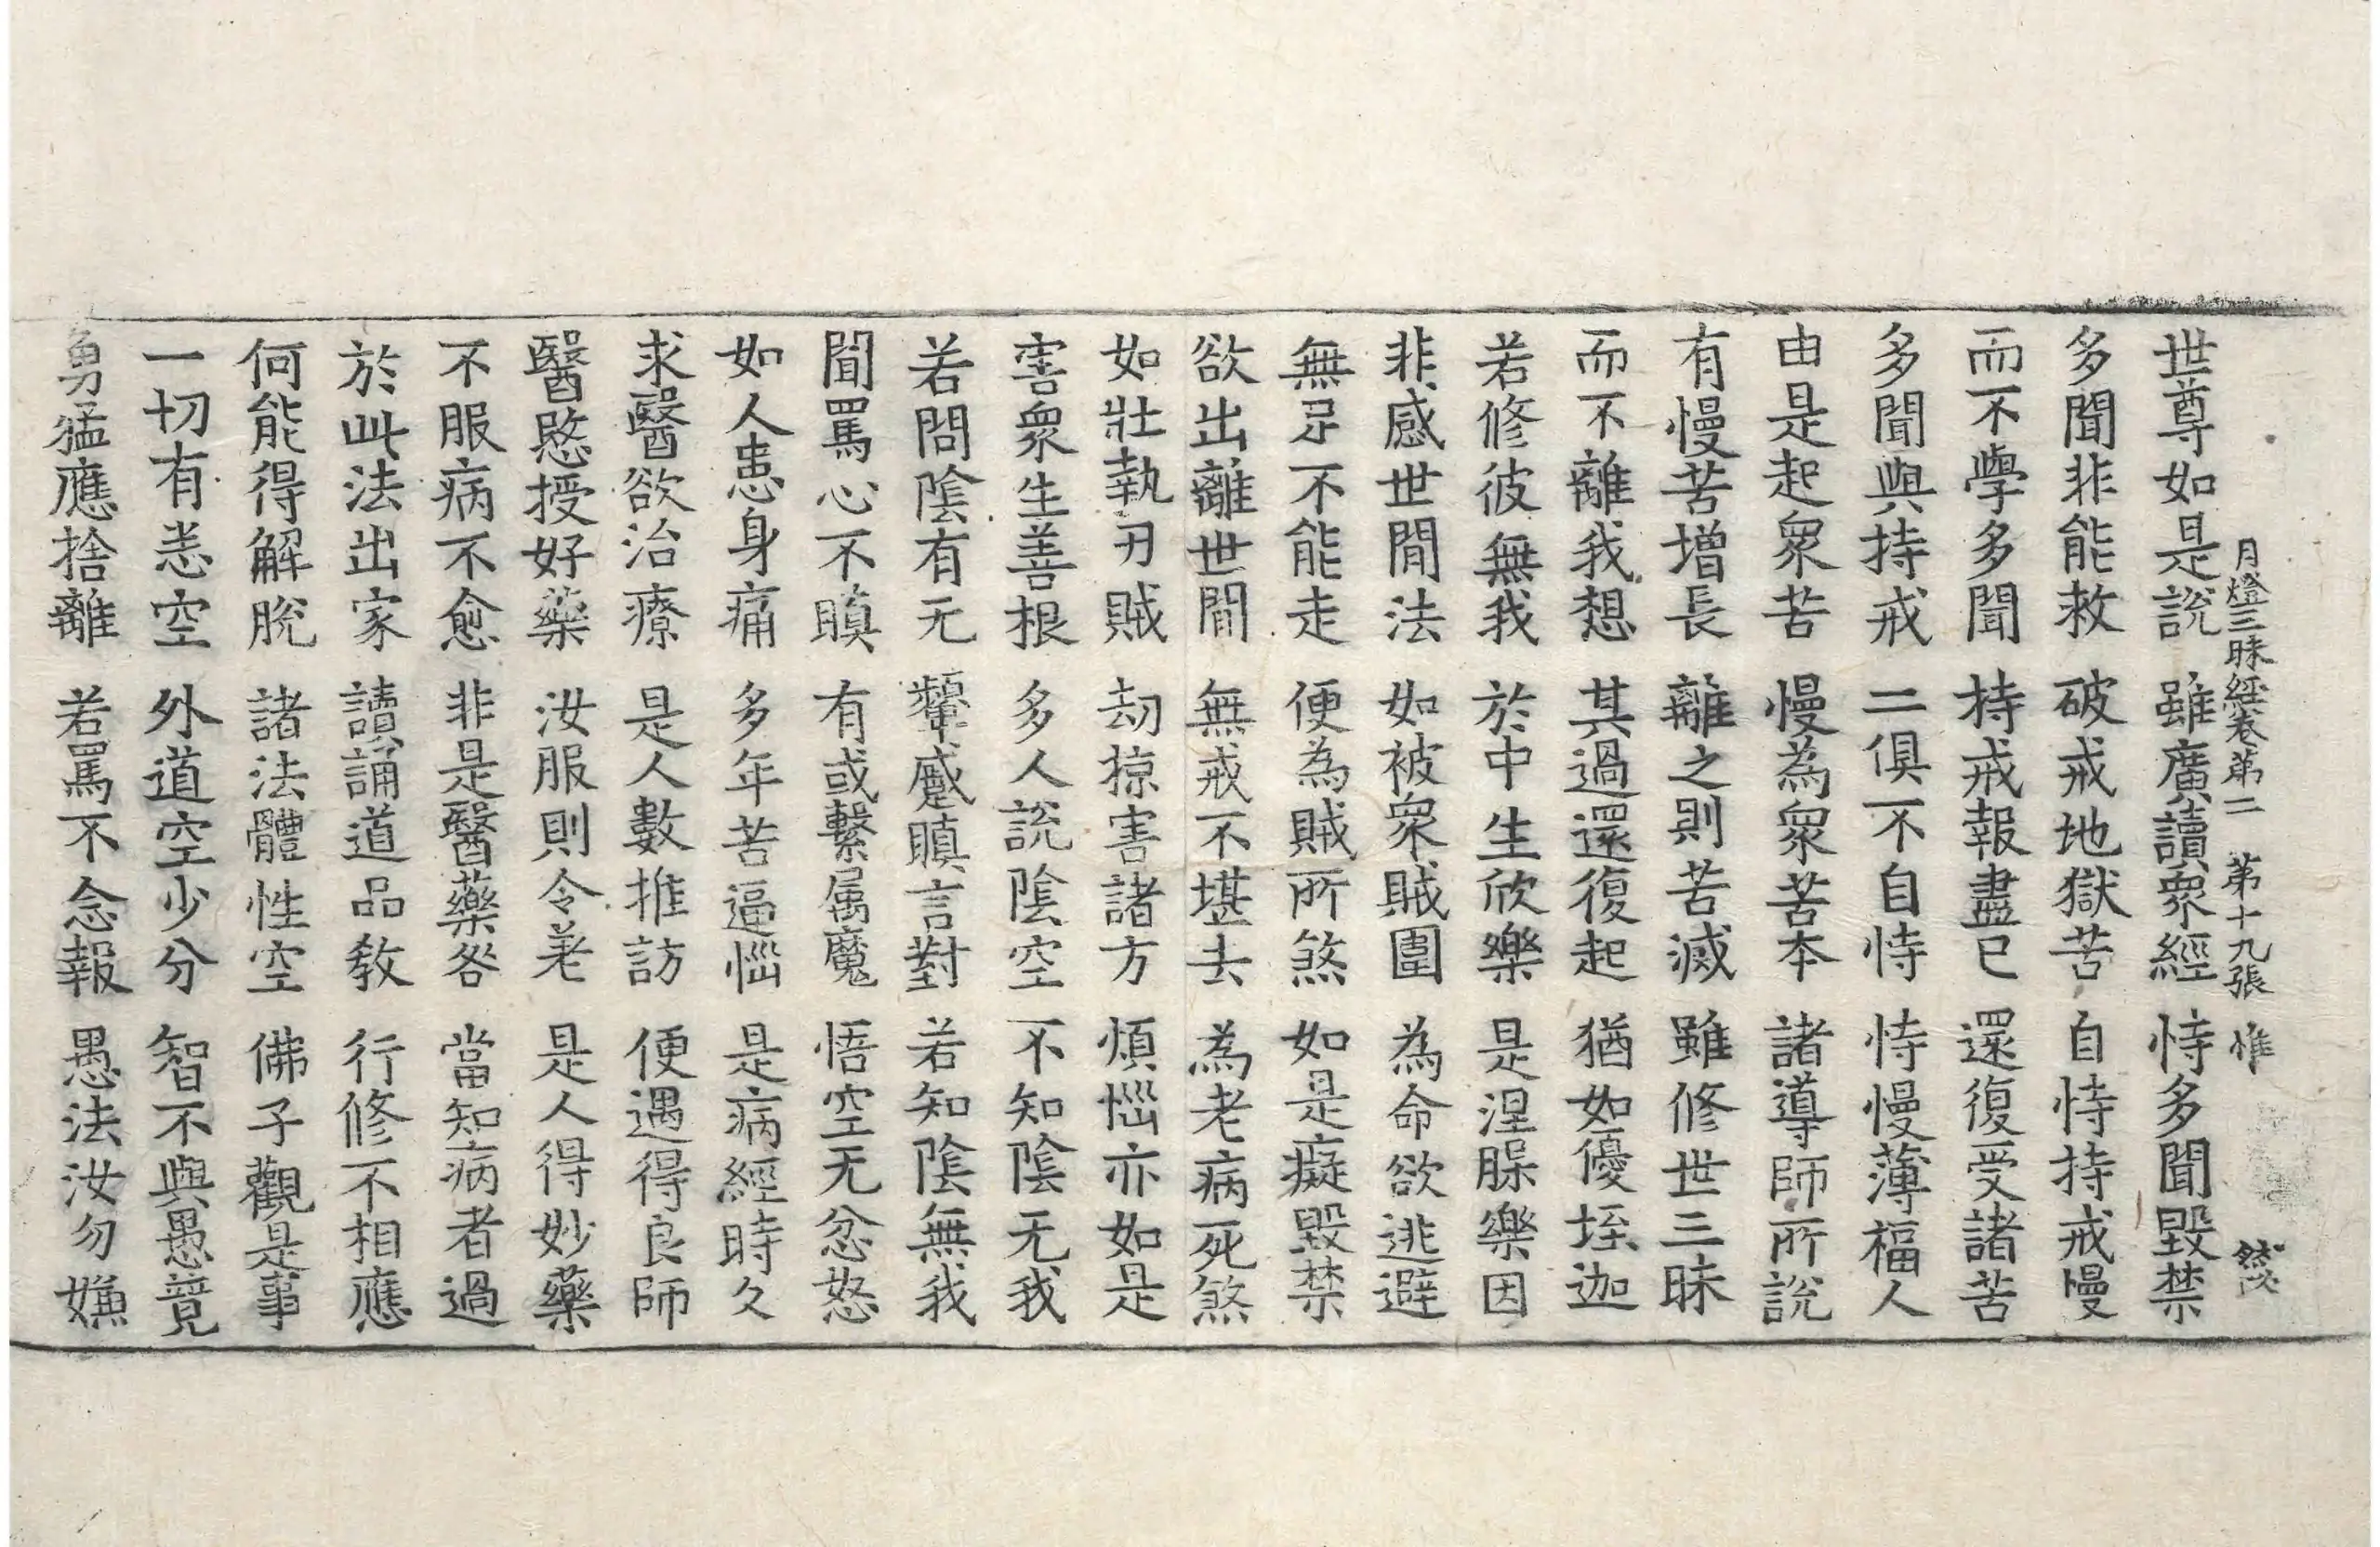 月燈三昧經卷第二　第十九張　惟
世尊如是說　雖廣讀衆經　恃多聞毀禁
多聞非能救　破戒地獄苦　自恃持戒慢
而不學多聞　持戒報盡已　還復受諸苦
多聞與持戒　二俱不自恃　恃慢薄福人
由是起衆苦　慢為衆苦本　諸導師所說
有慢苦增長　離之則苦滅　雖修世三昧
而不離我想　其過還復起　猶如優垤迦
若修彼無我　於中生欣樂　是涅槃樂因
非感世間法　如被衆賊圍　為命欲逃避
無足不能走　便為賊所煞　如是癡毀禁
欲出離世間　無戒不堪去　為老病死煞
如壯執刃賊　劫掠害諸方　煩惱亦如是
害衆生善根　多人說陰空　不知陰无我
若問陰有无　顰蹙瞋言對　若知陰無我
聞罵心不瞋　有或繫屬魔　悟空无忿怒
如人患身痛　多年苦逼惱　是病經時久
求醫欲治療　是人數推訪　便遇得良師
醫愍授好藥　汝服則令差　是人得妙藥
不服病不愈　非是醫藥咎　當知病者過
於此法出家　讀誦道品教　行修不相應
何能得解脫　諸法體性空　佛子觀是事
一切有悉空　外道空少分　智不與愚競
勇猛應捨離　若罵不念報　愚法汝勿嫌